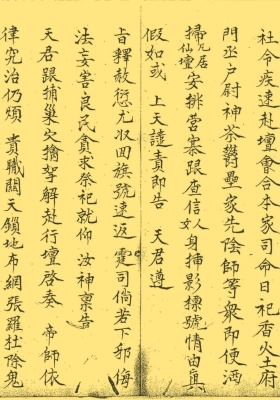 社令疾速赴壇會合本家司命日祀香火土府
門丞户尉神荼欝壘家先陰師等衆即便洒
掃凡居仙壇安排营寨跟查信人女身揷影標號情由真
假如或 上天譴責即告 天君遵
旨釋赦愆尤収囬旗號速返 霆司倘若下邪侮
法妄害良民貪求祭祀就仰 汝神禀告
天君跟捕巢穴擒拏解赴行壇啓奏 帝師依
律究治仍煩 貴職關天鎖地布網張羅杜除鬼